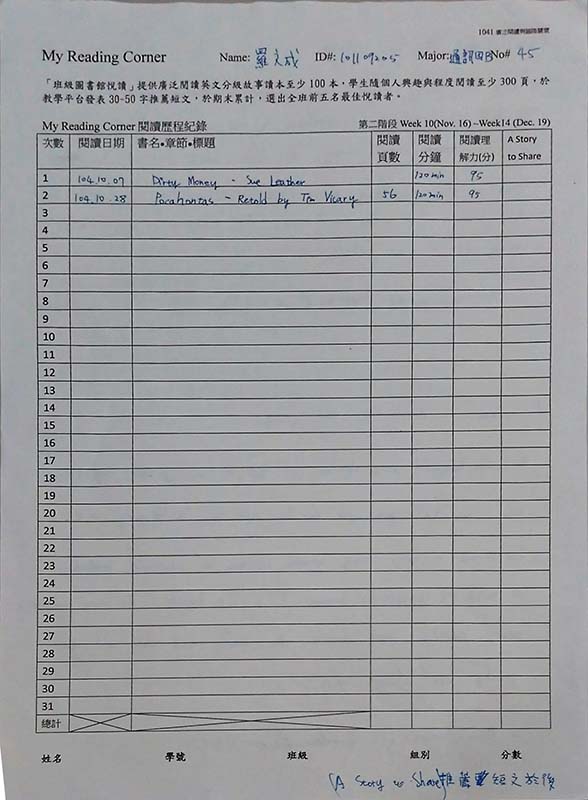 1041 廣泛閱讀與圖書館導覽
My Reading Corner Name: 羅文成 ID#: 101109205 Major: 通訊四B No# 45
「班級圖書館悅讀」提供廣泛閱讀英文分級故事讀本至少 100 本，學生隨個人興趣與程度閱讀至少 300 頁，於
教學平台發表 30-50 字推薦短文，於期末累計，選出全班前五名最佳悅讀者。
My Reading Corner 閱讀歷程紀錄 第二階段 Week 10(Nov. 16) ~Week14 (Dec. 19)
次數 閱讀日期 書名•章節•標題 閱讀頁數 閱讀分鐘 閱讀理解力(分) A Story to Share
1 104.10.07 Dirty Money - Sue Leather 120min 95
2 104.10.28 Pocahontas - Retold by Tim Vicary 56 120min 95
3
4
5
6
7
8
9
10
11
12
13
14
15
16
17
18
19
20
21
22
23
24
25
26
27
28
29
30
31
總計
姓名 學號 班級 組別 分數
(A Story to Share) 推薦短文於後